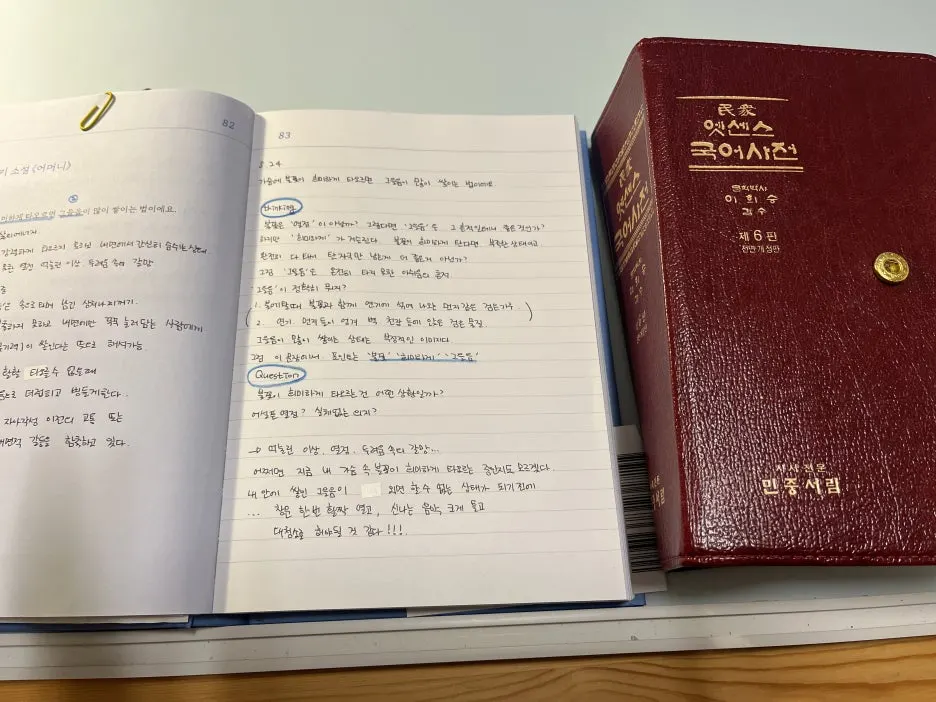 82
이 소설 <어머니>
희미하게 타오르면 그을음이 많이 쌓이는 법이에요.
내면에서 간신히 숨쉬는 상태
열정 억눌린 이상, 두려움 속의 갈망
속으로 타며
못하고 내면에만 꾹꾹 눌러 담는 사람에게
이 쌓인다는 뜻으로 해석가능.
활활 타오를 수 없을 때
으로 더럽히고 병들게한다.
자아각성 이전의 고통 또는
내면적 갈등을 함축하고 있다.
83
5.24
가슴에 불꽃이 희미하게 타오르면 그을음이 많이 쌓이는 법이에요
불꽃은 '열정'이 아닐까? 그렇다면 '그을음'은 그 흔적인데 좋은 것인가?
하지만 '희미하게'가 거슬린다. 불꽃이 희미하게 탄다면 부족한 상태이고
완전히 다 타서 탄 자국만 남는게 더 좋은거 아닌가?
그럼 '그을음'은 온전히 타지 못한 아쉬움의 흔적
'그을음'이 정확히 뭐지?
1. 불에 탈 때 불꽃과 함께 연기에 섞여 나오는 먼지 같은 검은 가루
2. 연기 먼지 등이 엉겨 벽, 천장 등에 앉은 검은 물질
그을음이 많이 쌓이는 상태는 부정적인 이미지다
그럼 이 문장에서 포인트는 '불꽃' '희미하게' '그을음'
Question
불꽃이 희미하게 타오르는건 어떤 상황일까?
어설픈 열정? 실체없는 의지?
→ 억눌린 이상, 열정, 두려움 속의 갈망...
어쩌면 지금 내 가슴 속 불꽃이 희미하게 타오르는 중인지도 모르겠다
내 안에 쌓인 그을음이 되면 할 수 없는 상태가 되기 전에
... 창문 한번 활짝 열고, 신나는 음악 크게 틀고
대청소를 해야될 것 같다!!!.
民衆
엣센스
국어사전
문학박사
이희승
감수
제6판
전면개정판
민중서림
民衆
엣센스
국어사전